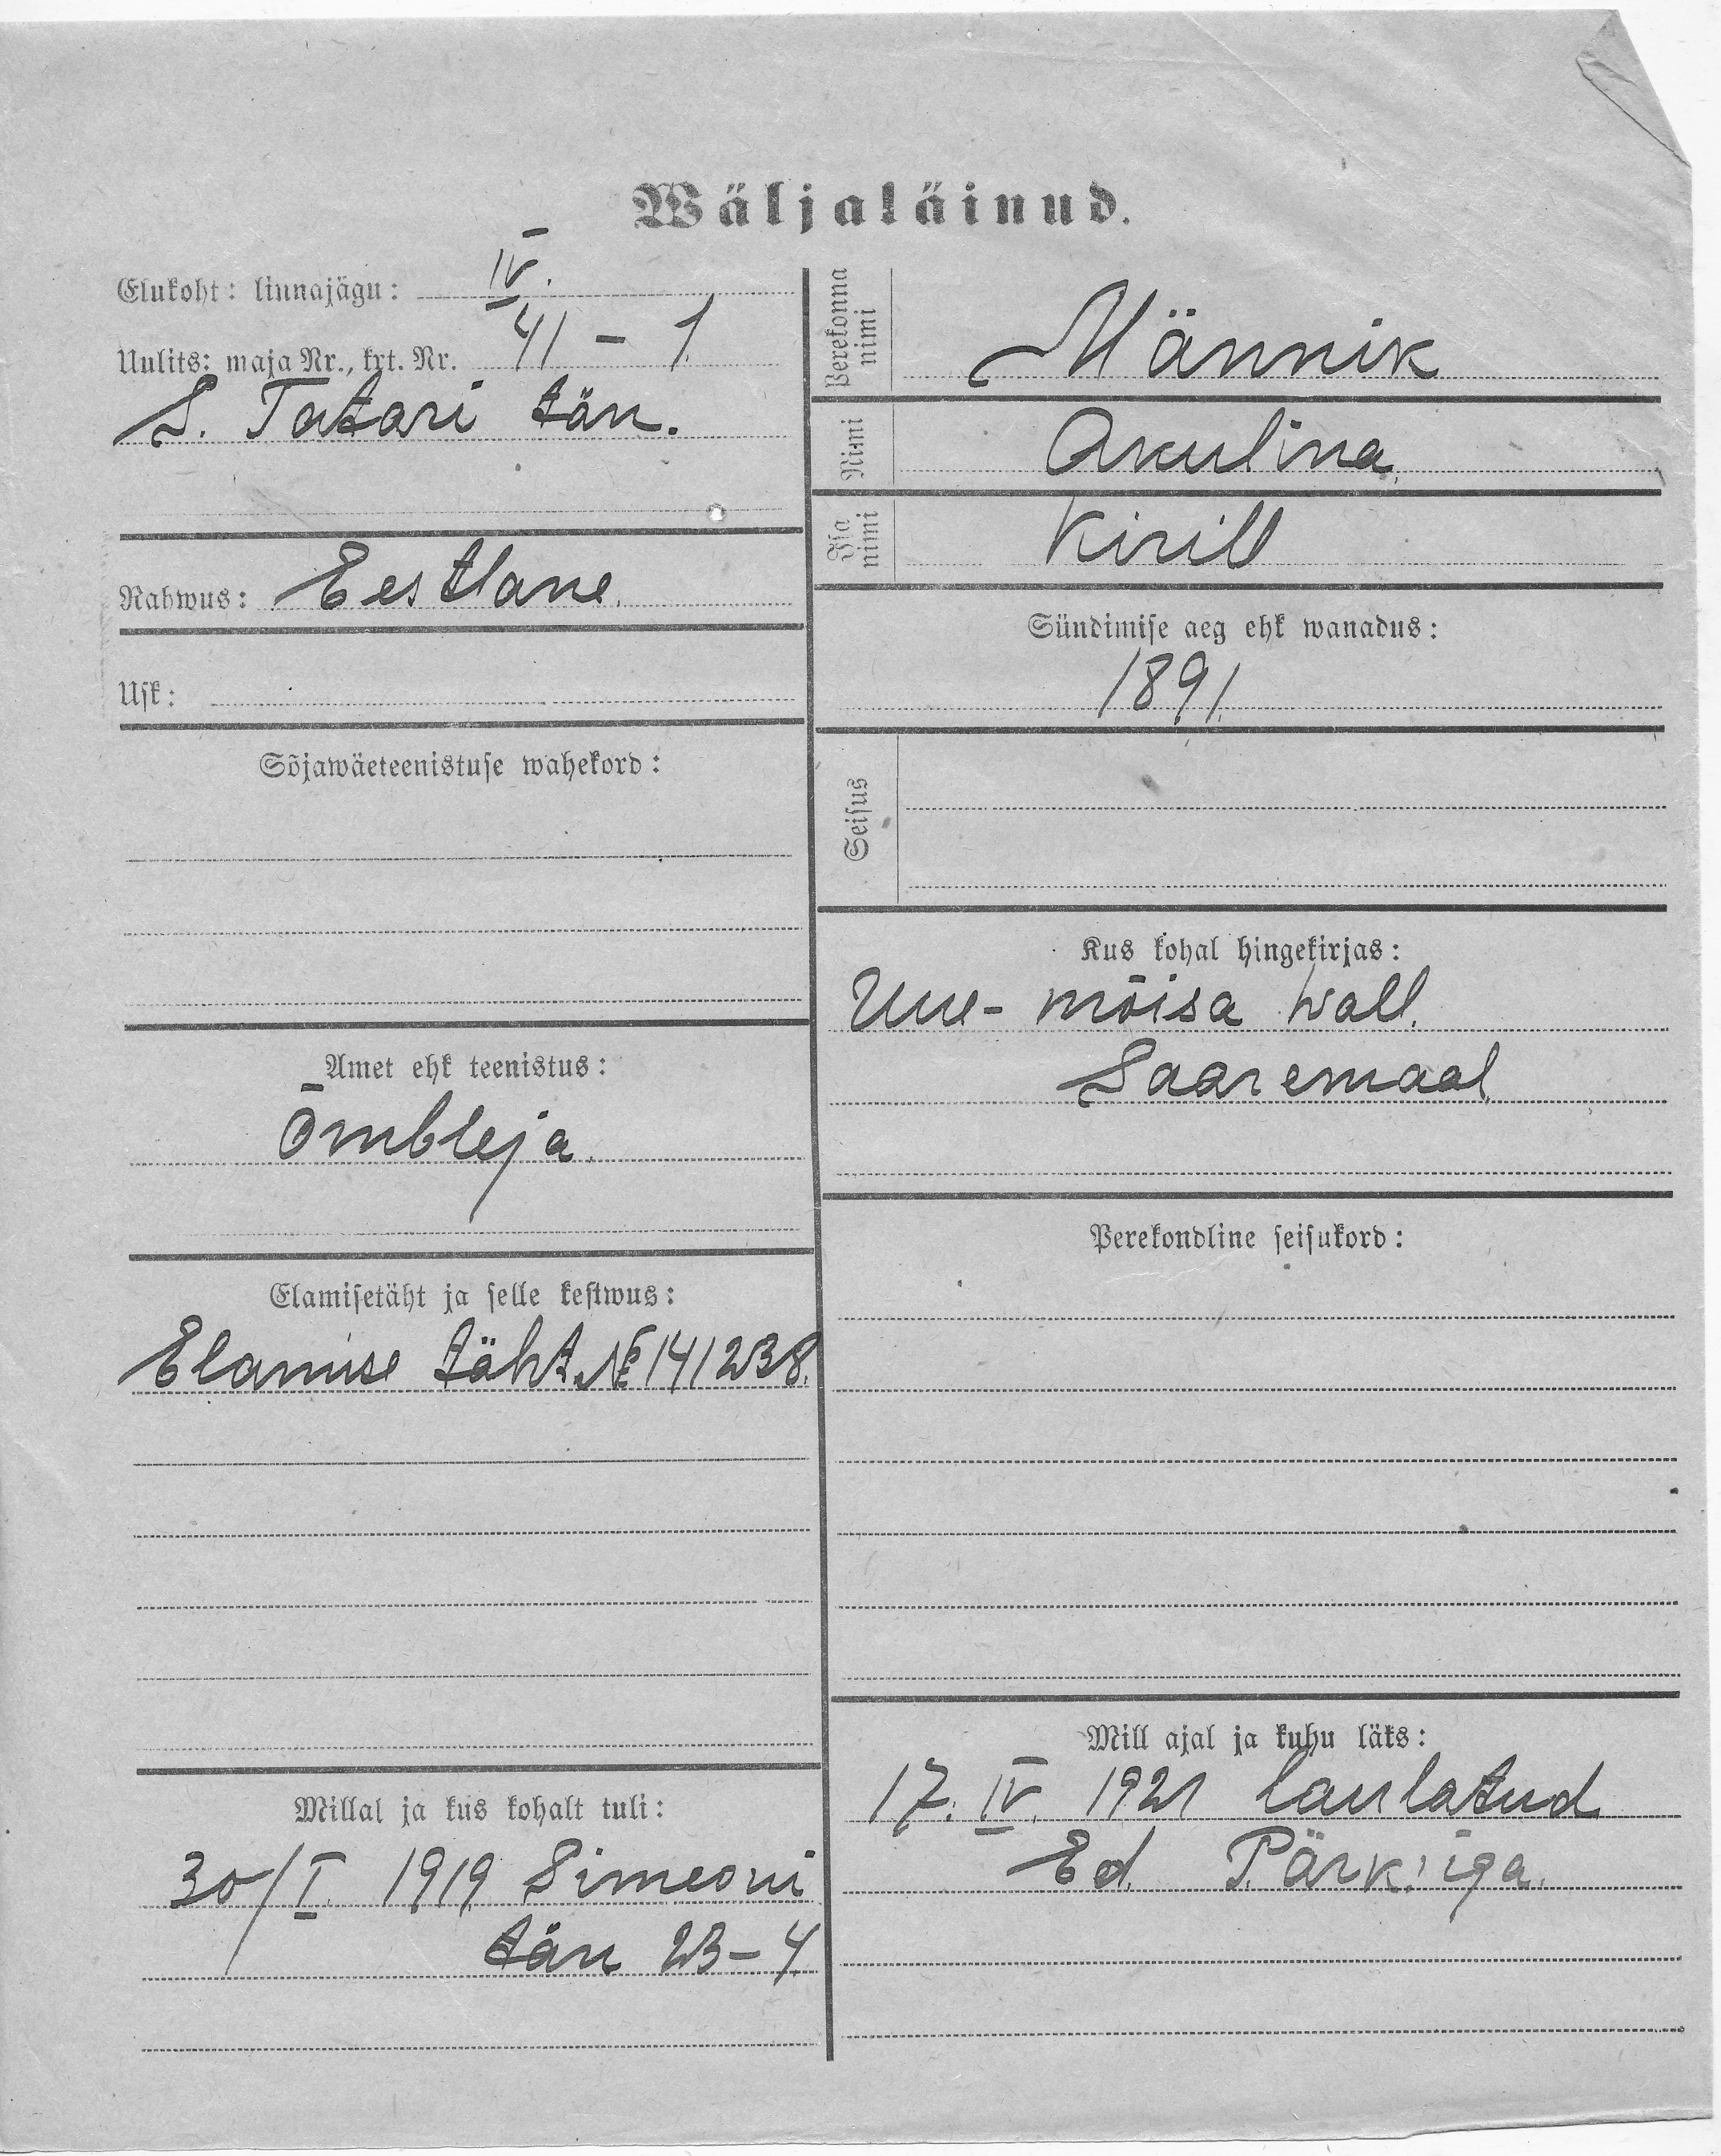 Wäljaläinud.
Elukoht: linnajägu: IV.
Uulits: maja Nr., krt. Nr. 41 - 1.
S. Tatari tän.
Rahwus: Eestlane.
Usk:
Sõjawäeteenistuse wahekord:
Amet ehk teenistus:
Õmbleja.
Elamisetäht ja selle kestwus:
Elamise täht. № 141238.
Millal ja kus kohalt tuli:
30/I. 1919 Simeoni
tän 23-4.
Perekonna nimi
Männik
Nimi
Akulina
Isa nimi
Kirill
Sündimise aeg ehk wanadus:
1891.
Seisus
Kus kohal hingekirjas:
Uue-mõisa wall.
Saaremaal.
Perekondline seisukord:
Mill ajal ja kuhu läks:
17. IV. 1921 laulatud
Ed. Pärk'iga.